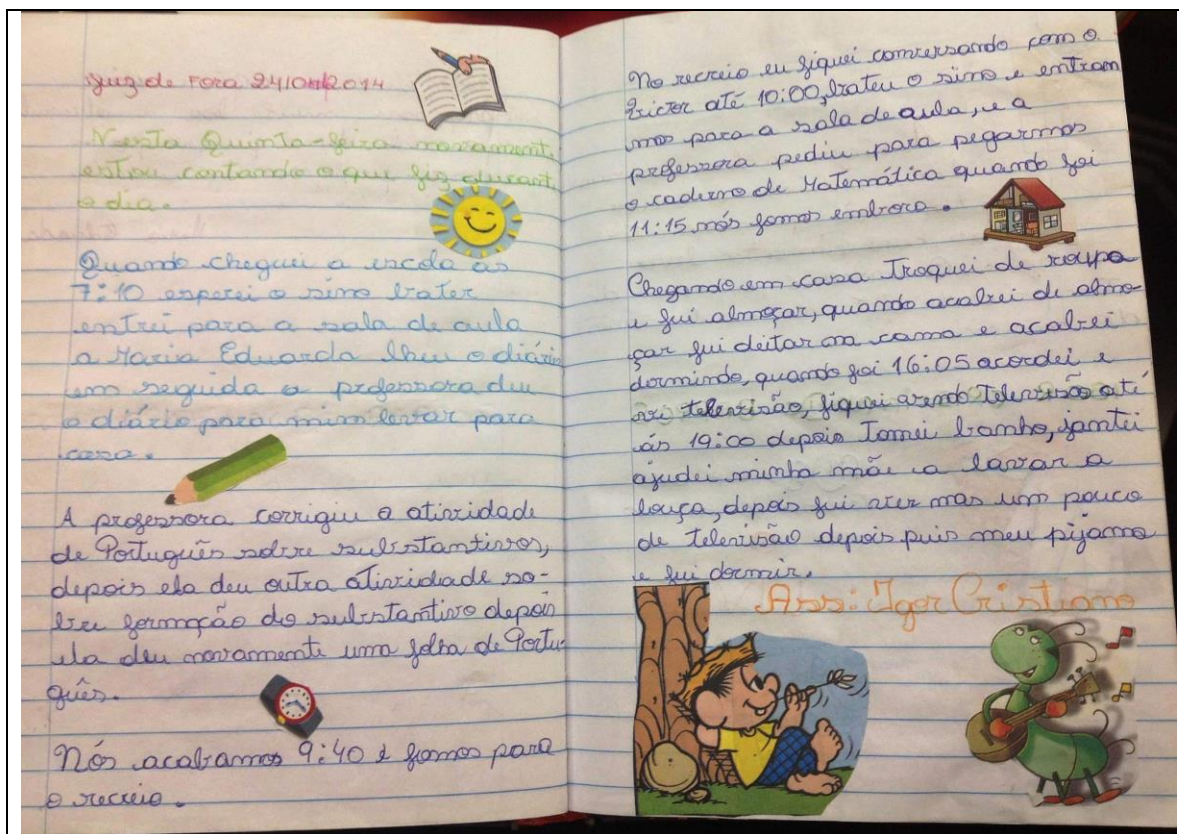 Juiz de Fora 24/04/2014
Nesta Quinta-feira novament
estou contando o que fiz durant
o dia.
Quando cheguei a escola as
7:10 esperei o sino bater
entrei para a sala de aula
a Maria Eduarda lheu o diário
em seguida a professora deu
o diário para mim levar para
casa.
A professora corrigiu a atividade
de Português sobre substantivos,
depois ela deu outra atividade so-
bre formação do substantivo depois
ela deu novamente uma folha de Portu-
guês.
Nós acabamos 9:40 e fomos para
o recreio.
No recreio eu fiquei conversando com o
Victor até 10:00, bateu o sino e entram
mos para a sala de aula, e a
professora pediu para pegarmos
o caderno de Matemática quando foi
11:15 nós fomos embora.
Chegando em casa Troquei de roupa
e fui almoçar, quando acabei de almo-
çar fui deitar na cama e acabei
dormindo, quando foi 16:05 acordei e
televisão, fiquei vendo Televisão até
ás 19:00 depois Tomei banho, jantei
ajudei minha mãe a lavar a
louça, depois fui ver mas um pouco
de Televisão depois puis meu pijama
e fui dormir.
Ass: Igor Cristiano